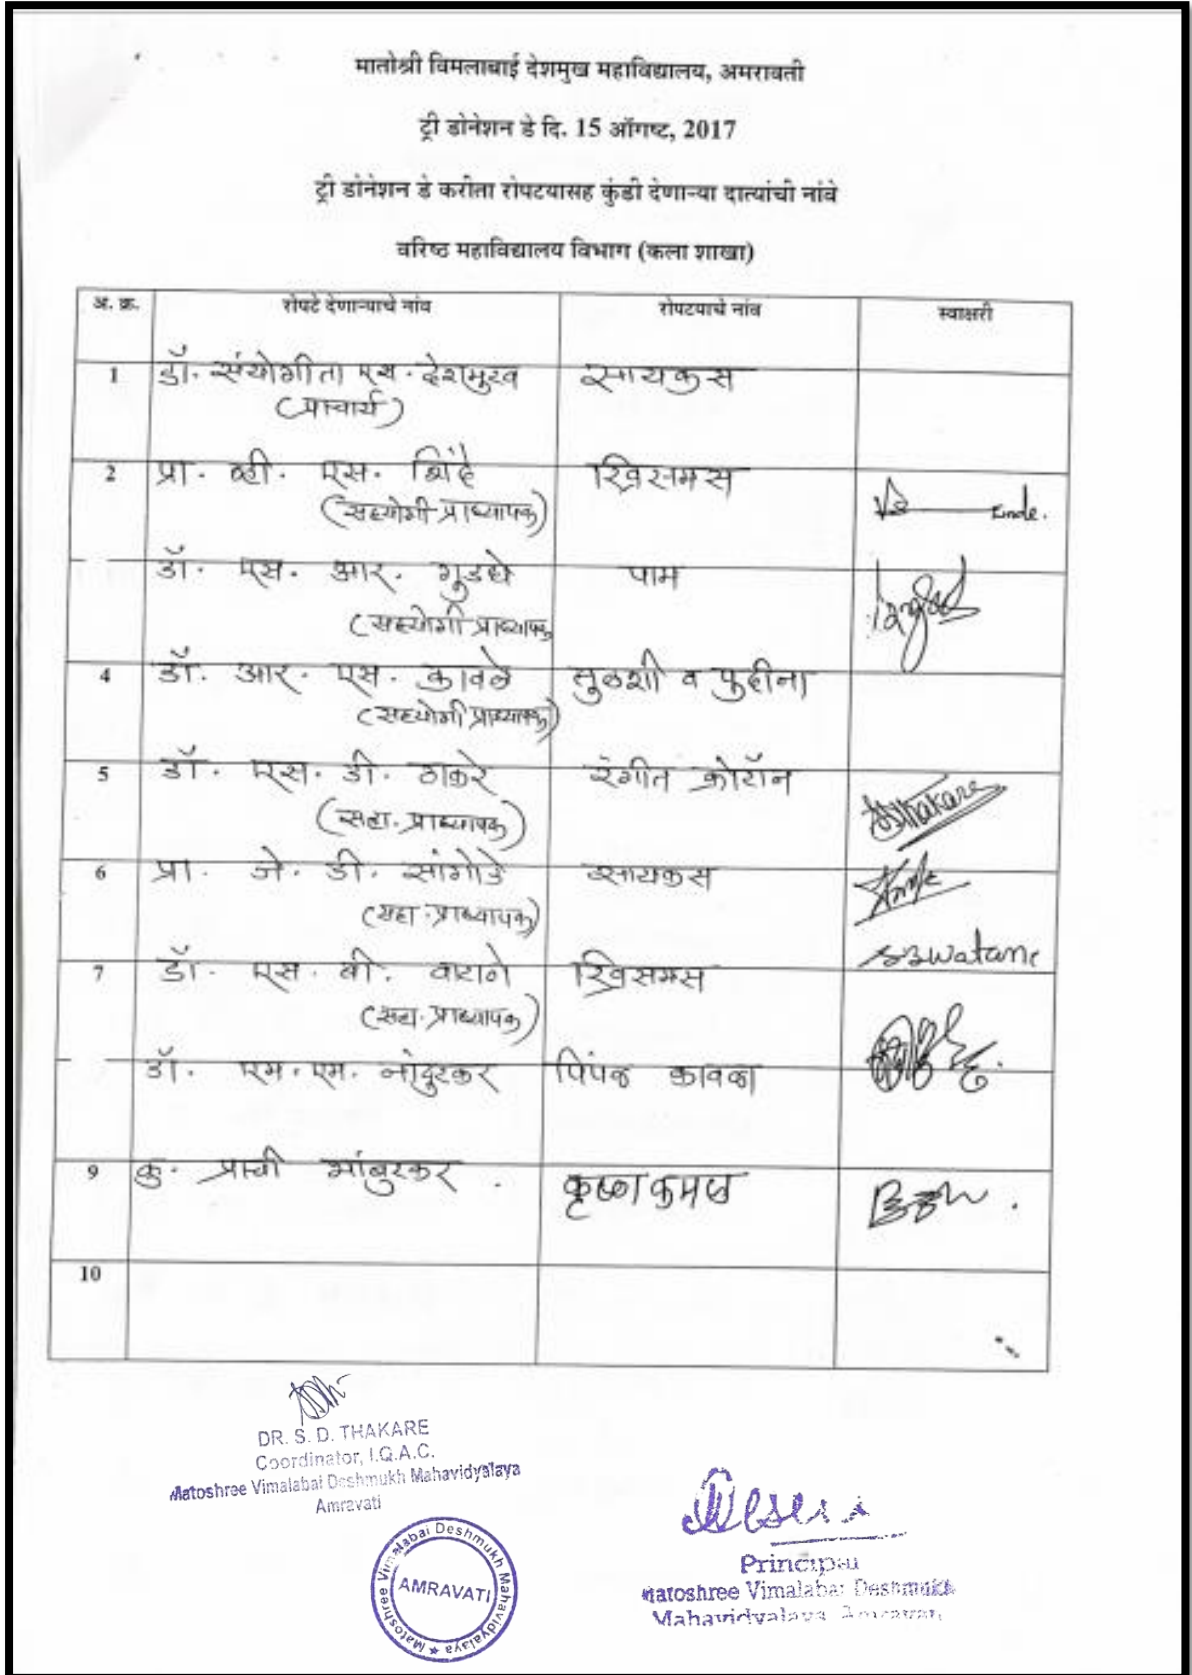 मातोश्री विमलाबाई देशमुख महाविद्यालय, अमरावती
ट्री डोनेशन डे दि. 15 ऑगष्ट, 2017
ट्री डोनेशन डे करीता रोपटयासह कुंडी देणाऱ्या दात्यांची नांवे
वरिष्ठ महाविद्यालय विभाग (कला शाखा)
अ. क्र. रोपटे देणाऱ्याचे नांव रोपटयाचे नांव स्वाक्षरी
1 डॉ. संयोगीता एस. देशमुख सायकस
(प्राचार्य)
2 प्रा. व्ही. एस. शिंदे ख्रिसमस
(सहयोगी प्राध्यापक)
डॉ. एस. आर. गुडधे पाम
(सहयोगी प्राध्यापक
4 डॉ. आर. एस. कावळे तुळशी व पुदीना
(सहयोगी प्राध्यापक)
5 डॉ. एस. डी. ठाकरे रंगीत क्रोटॉन
(सहा. प्राध्यापक) SDThakare
6 प्रा. जे. डी. सांगोडे सायकस
(सहा. प्राध्यापक)
7 डॉ. एस. बी. वाटाणे ख्रिसमस SBWatane
(सहा. प्राध्यापक)
डॉ. एम. एम. नांदुरकर पिंपळ कावळा
9 कु. प्राची भांबुरकर. कृष्णकमळ
10
DR. S. D. THAKARE
Coordinator, I.Q.A.C.
Matoshree Vimalabai Deshmukh Mahavidyalaya
Amravati
Matoshree Vimalabai Deshmukh Mahavidyalaya ★
AMRAVATI
Principal
Matoshree Vimalabai Deshmukh
Mahavidyalaya, Amravati